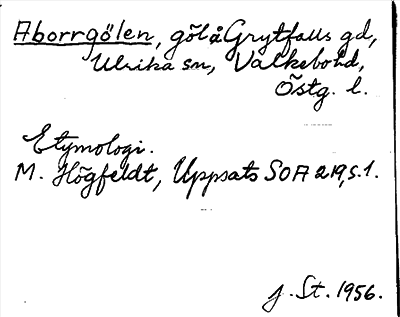 Aborrgölen, göl å Grytfalls gd,
Ulrika sn, Valkebo hd,
Östg. l.
Etymologi.
M. Högfeldt, Uppsats SOA 219, s. 1.
J. St. 1956.